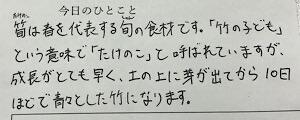 今日のひとこと
筍は春を代表する旬の食材です。「竹の子ども」
という意味で「たけのこ」と呼ばれていますが、
成長がとても早く、土の上に芽が出てから10日
ほどで青々とした竹になります。